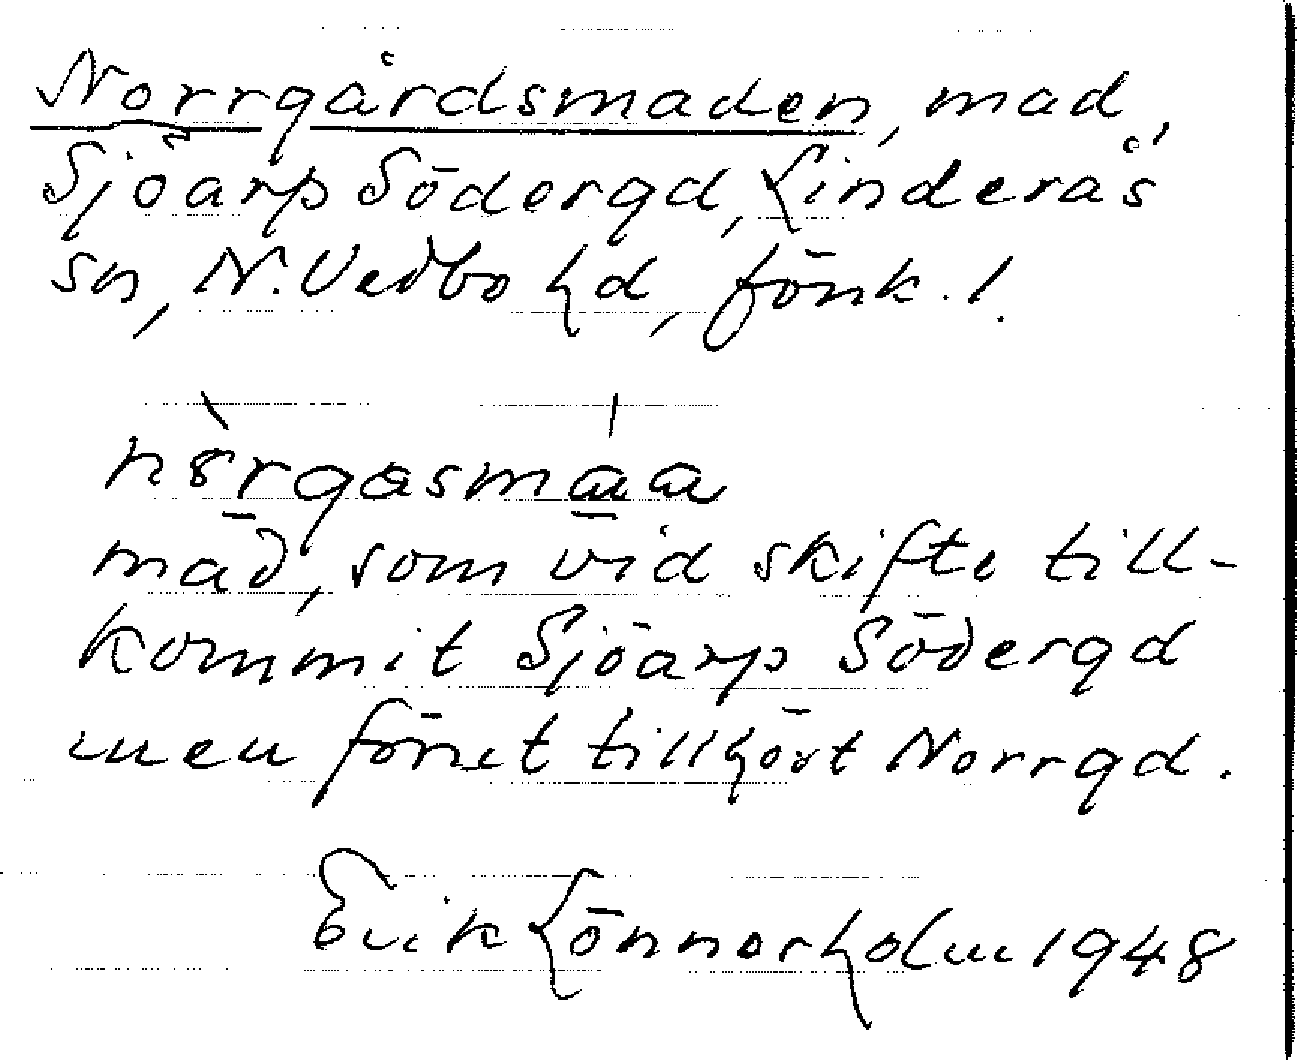 Norrgårdsmaden, mad,
Sjöarp Södergd, Linderås
sn, N. Vedbo hd, Jönk. l.
mad, som vid skifte till-
kommit Sjöarp Södergd
men förut tillhört Norrgd.
Erik Lönnerholm 1948